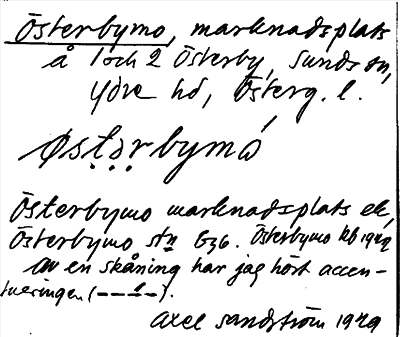 Österbymo, marknadsplats
å 1 och 2 Österby, Sunds sn,
Ydre hd, Österg. l.
Østərbymó
Österbymo marknadsplats ek,
Österbymo stn G36. Österbymo kb 1942
Av en skåning har jag hört accen-
tueringen (– – ´– –).
Axel Sandström 1949